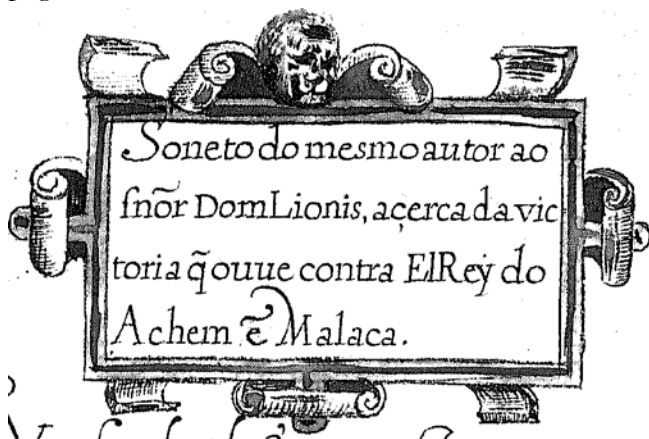 Soneto do mesmo autor ao
ſnõr Dom Lionis, açerca da vic
toria q̃ ouue contra ElRey do
Achem ẽ Malaca.